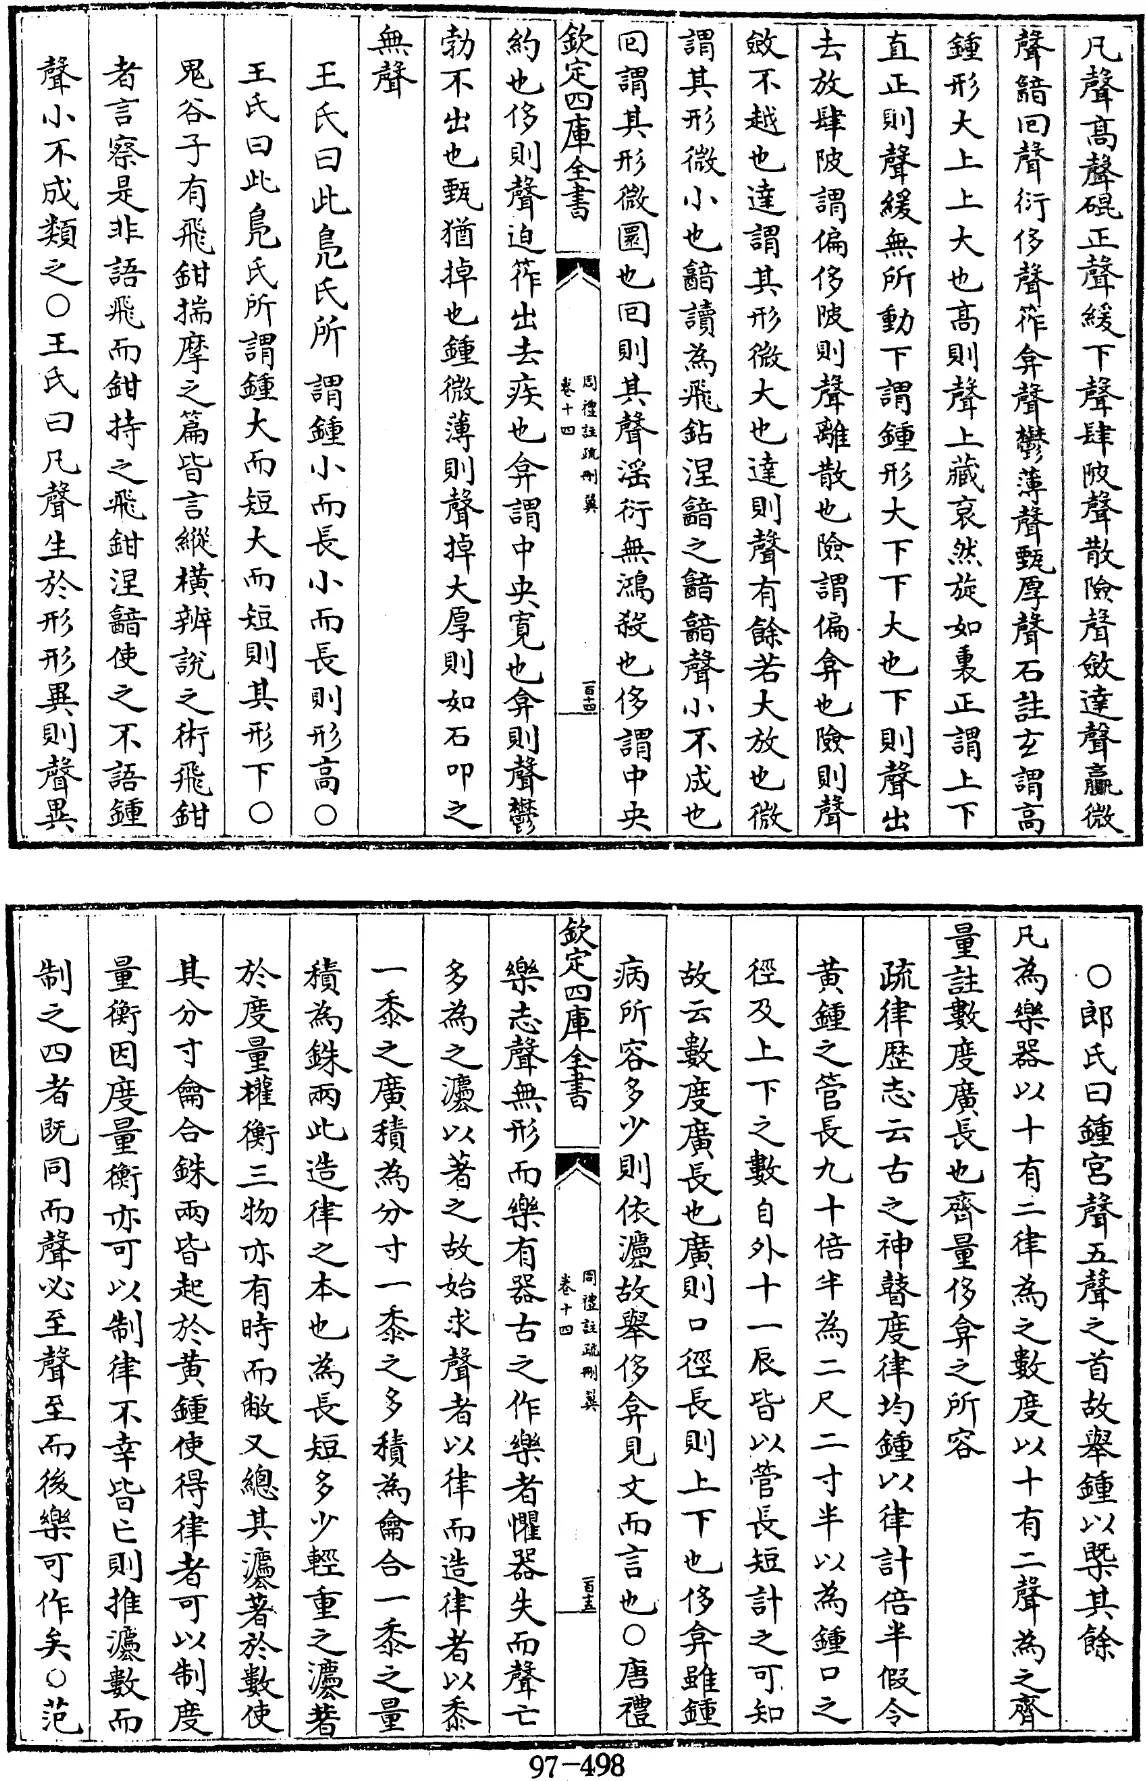 凡聲高聲䃂正聲緩下聲肆陂聲散險聲斂達聲贏微
聲韽回聲衍侈聲筰弇聲鬱薄聲甄厚聲石註玄謂高
鍾形大上上大也高則聲上藏衮然旋如裏正謂上下
直正則聲緩無所動下謂鍾形大下下大也下則聲出
去放肆陂謂偏侈陂則聲離散也險謂偏弇也險則聲
斂不越也達謂其形微大也達則聲有餘若大放也微
謂其形微小也韽讀為飛鉆涅韽之韽韽聲小不成也
回謂其形微圜也回則其聲淫衍無鴻殺也侈謂中央
欽定四庫全書
周禮註疏刪翼
卷十四
一百十四
約也侈則聲迫筰出去疾也弇謂中央寛也弇則聲鬱
勃不出也甄猶掉也鍾微薄則聲掉大厚則如石叩之
無聲
王氏曰此鳧氏所謂鍾小而長小而長則形高○
王氏曰此鳧氏所謂鍾大而短大而短則其形下○
鬼谷子有飛鉗揣摩之篇皆言縱橫辨說之術飛鉗
者言察是非語飛而鉗持之飛鉗涅韽使之不語鍾
聲小不成類之○王氏曰凡聲生於形形異則聲異
○郎氏曰鍾宮聲五聲之首故舉鍾以槩其餘
凡為樂器以十有二律為之數度以十有二聲為之齊
量註數度廣長也齊量侈弇之所容
疏律歴志云古之神瞽度律均鍾以律計倍半假令
黃鍾之管長九十倍半為二尺二寸半以為鍾口之
徑及上下之數自外十一辰皆以管長短計之可知
故云數度廣長也廣則口徑長則上下也侈弇雖鍾
病所容多少則依灋故舉侈弇見文而言也○唐禮
欽定四庫全書
周禮註疏刪翼
卷十四
一百十五
樂志聲無形而樂有器古之作樂者懼器失而聲亡
多為之灋以著之故始求聲者以律而造律者以黍
一黍之廣積為分寸一黍之多積為龠合一黍之量
積為銖兩此造律之本也為長短多少輕重之灋著
於度量權衡三物亦有時而敝又總其灋著於數使
其分寸龠合銖兩皆起於黃鍾使得律者可以制度
量衡因度量衡亦可以制律不幸皆亡則推灋數而
制之四者既同而聲必至聲至而後樂可作矣○范
97-498